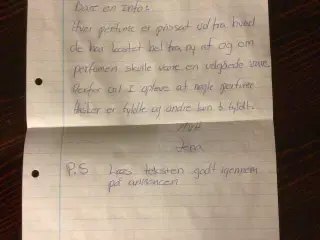 Bare en info:
Hver perfume er prissat ud fra hvad
de har kostet hel fra ny af og om
perfumen skulle være en velgørende
Derfor vil I opleve at nogle perfumer
er fyldte og andre kun ½ fyldt.
MVH
P.S Læs teksten godt igennem
på annoncen